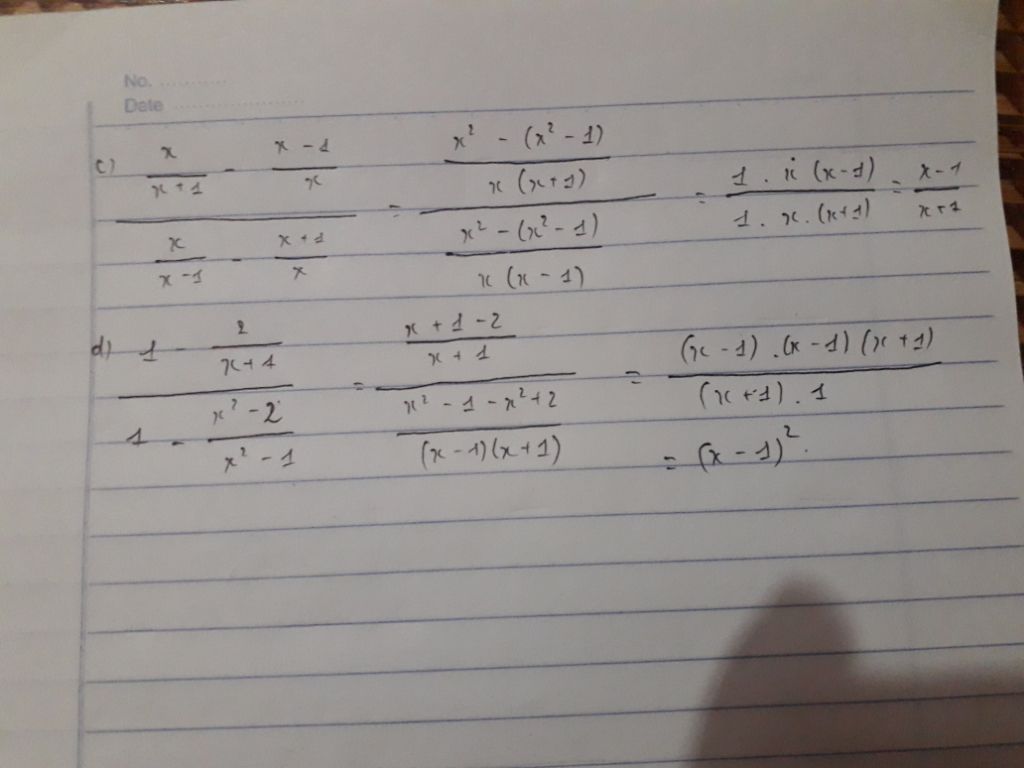 No. ............
Date ........................
c) \frac{\frac{x}{x+1} - \frac{x-1}{x}}{\frac{x}{x-1} - \frac{x+1}{x}} = \frac{\frac{x^2 - (x^2-1)}{x(x+1)}}{\frac{x^2-(x^2-1)}{x(x-1)}} = \frac{1 . x(x-1)}{1 . x . (x+1)} = \frac{x-1}{x+1}
d) \frac{1 - \frac{2}{x+1}}{1 - \frac{x^2-2}{x^2-1}} = \frac{\frac{x+1-2}{x+1}}{\frac{x^2-1-x^2+2}{(x-1)(x+1)}} = \frac{(x-1) . (x-1)(x+1)}{(x+1) . 1}
= (x-1)^2.